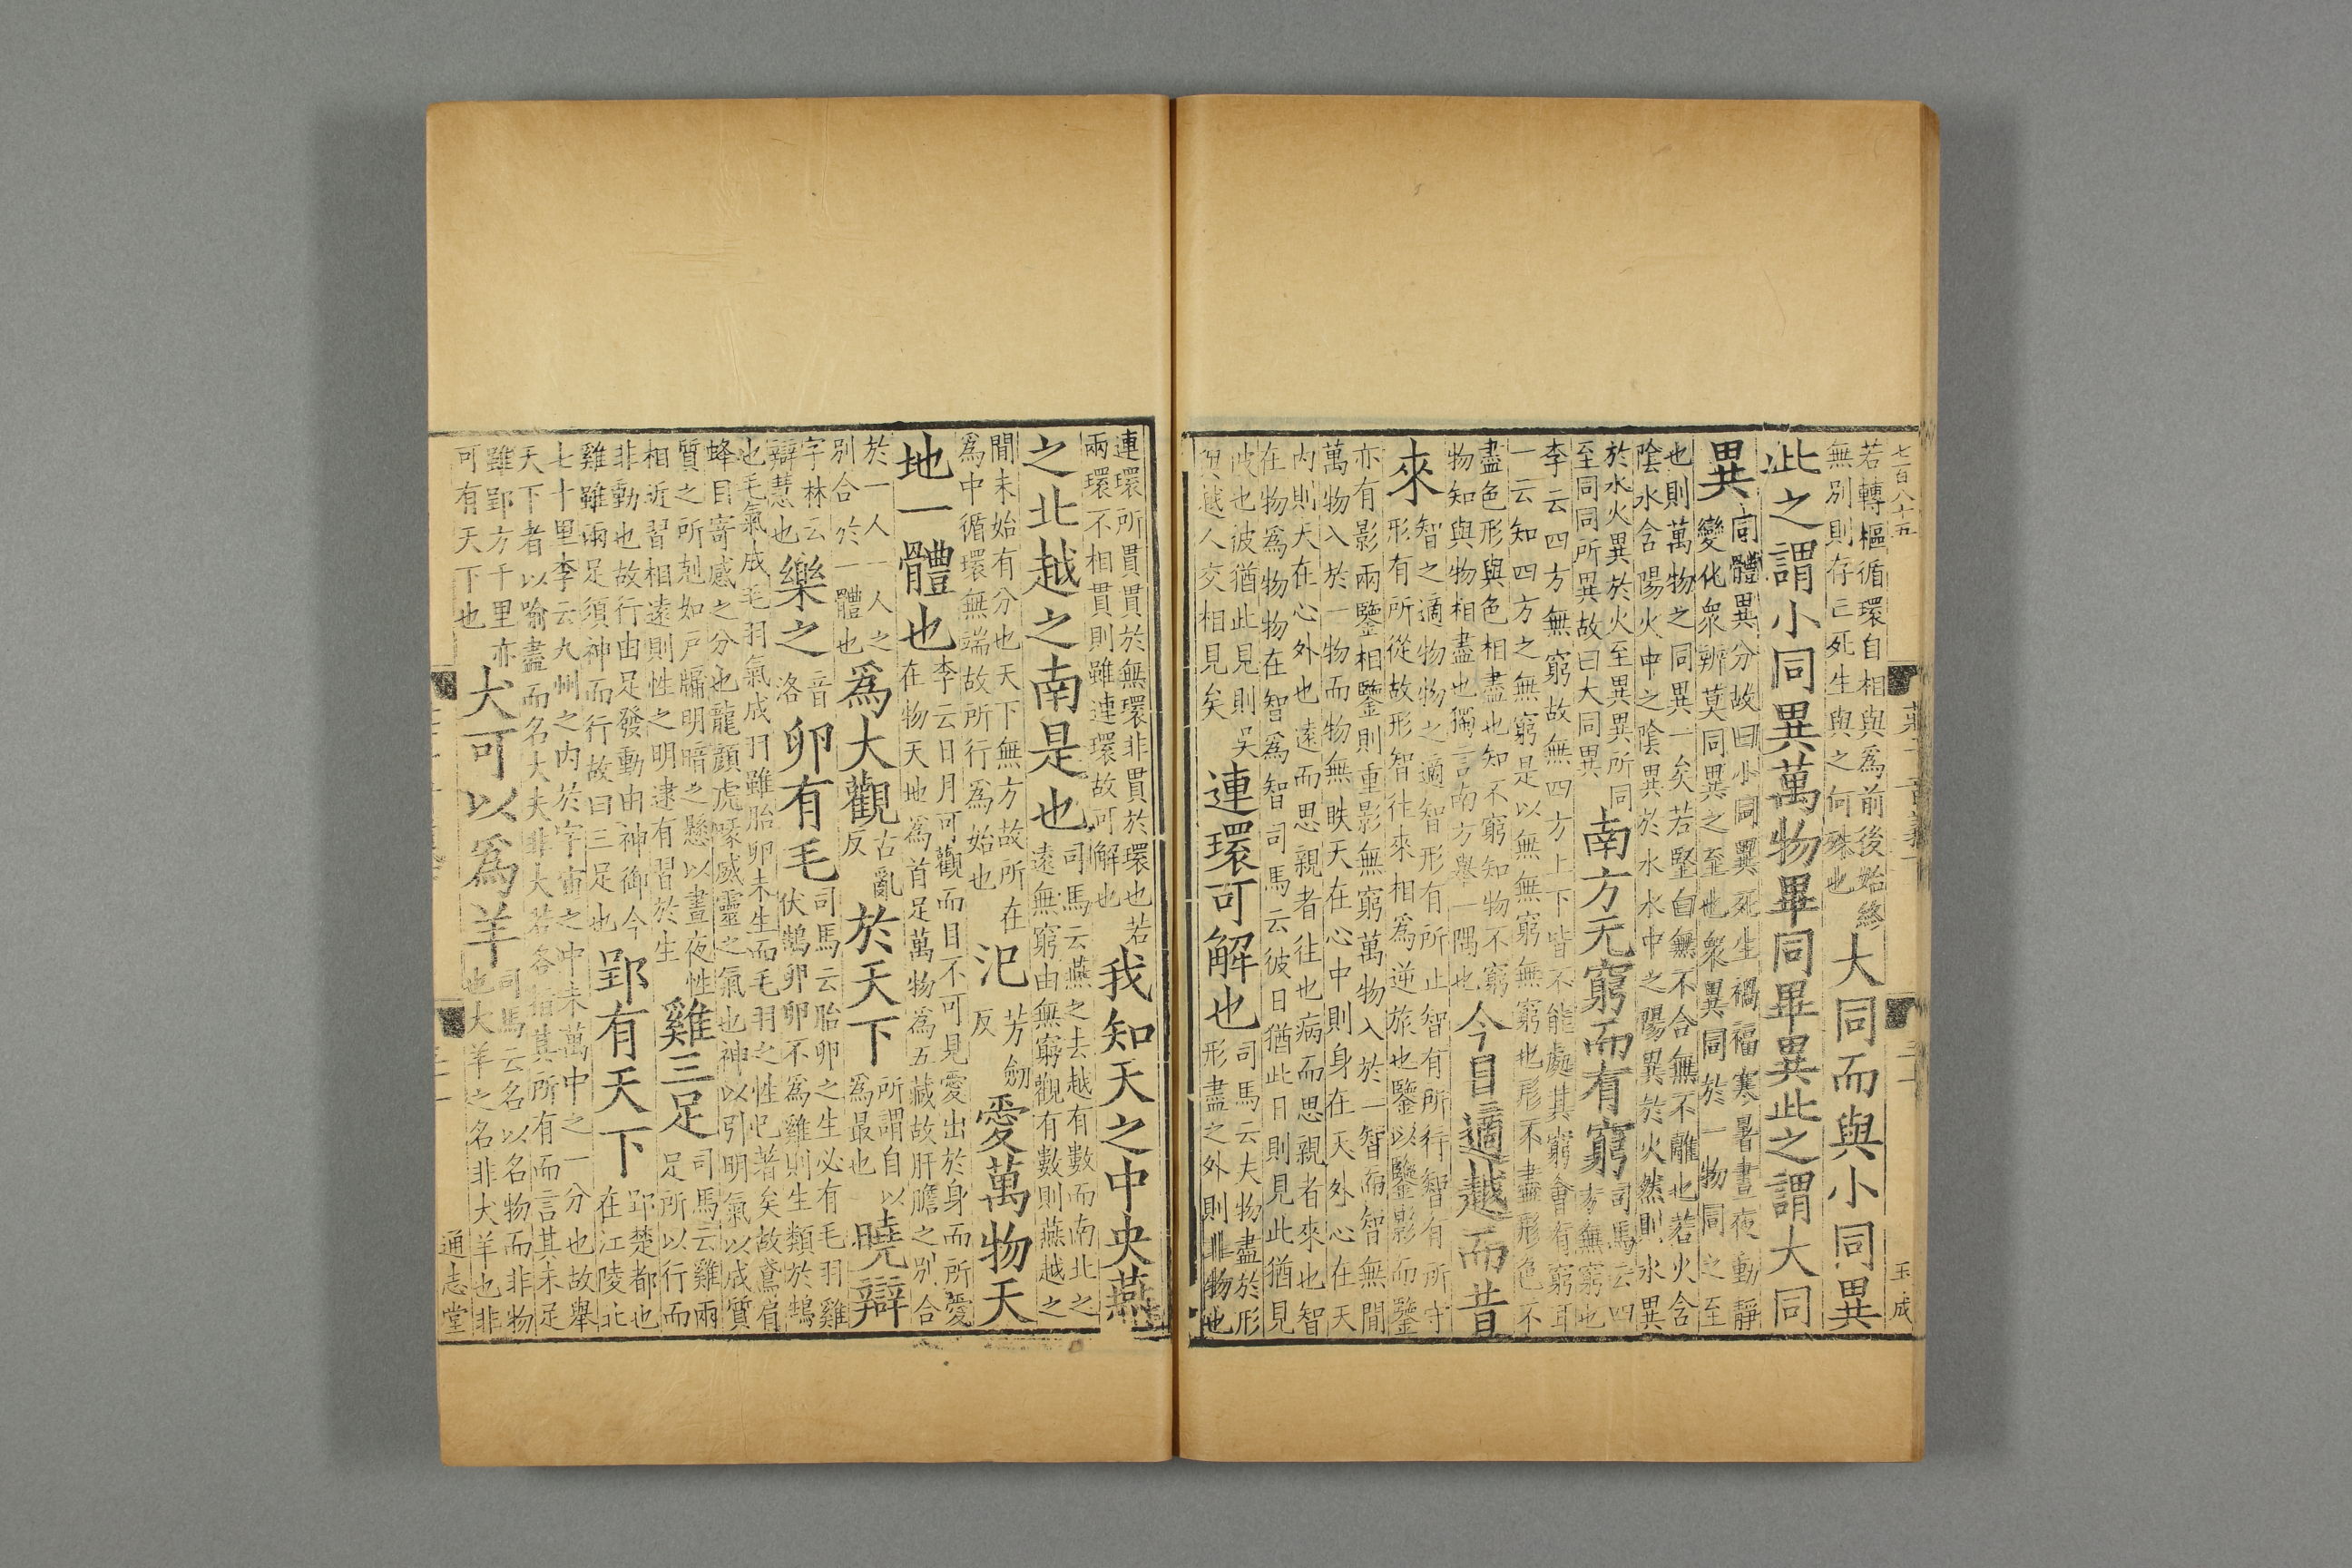 七百八十五
若轉樞循環自相與爲前後始終
無別則存亡死生與之何殊也
大同而與小同異
玉成
此之謂小同異萬物畢同畢異此之謂大同
異
同體異分故曰小同異死生禍福寒暑晝夜動靜
變化衆辨莫同異之至也衆異同於一物同之至
也則萬物之同異一矣若堅白無不合無不離也若火含
陰水含陽火中之陰異於水水中之陽異於火然則水異
於水火異於火至異異所同
至同同所異故曰大同異
南方无窮而有窮
司馬云四
方無窮也
李云四方無窮故無四方上下皆不能處其窮會有窮耳
一云知四方之無窮是以無無窮無窮也形不盡形色不
盡色形與色相盡也知不窮知物不窮
物知與物相盡也獨言南方舉一隅也
今日適越而昔
來
智之適物物之適智形有所止智有所行智有所守
形有所從故形智往來相爲逆旅也鑒以鑒影而鑒
亦有影兩鑒相鑒則重影無窮萬物入於一智而智無間
萬物入於一物而物無眹天在心中則身在天外心在天
内則天在心外也遠而思親者往也病而思親者來也智
在物爲物物在智爲智司馬云彼日猶此日則見此猶見
彼也彼猶此見則吳
與越人交相見矣
連環可解也
司馬云夫物盡於形
形盡之外則非物也
連環所貫貫於無環非貫於環也若
兩環不相貫則雖連環故可解也
我知天之中央燕
之北越之南是也
司馬云燕之去越有數而南北之
遠無窮由無窮觀有數則燕越之
間未始有分也天下無方故所在
爲中循環無端故所行爲始也
氾
芳劒
反
愛萬物天
地一體也
李云日月可觀而目不可見愛出於身而所愛
在物天地爲首足萬物爲五藏故肝膽之別合
於一人一人之
別合於一體也
爲大觀
古亂
反
於天下
所謂自以
爲最也
曉辯
字林云
辯慧也
樂之
音
洛
卵有毛
司馬云胎卵之生必有毛羽雞
伏鵠卵卵不爲雞則生類於鵠
也毛氣成毛羽氣成羽雖胎卵未生而毛羽之性已著矣故鳶肩
蜂目寄感之分也龍顏虎喙威靈之氣也神以引明氣以成質
質之所剋如戸牖明暗之懸以晝夜性
相近習相遠則性之明逮有習於生
雞三足
司馬云雞兩
足所以行而
非動也故行由足發動由神御今
雞雖兩足須神而行故曰三足也
郢有天下
郢楚都也
在江陵北
七十里李云九州之内於宇宙之中未萬中之一分也故舉
天下者以喻盡而名大夫非大若各指其所有而言其未足
雖郢方千里亦
可有天下也
犬可以爲羊
司馬云名以名物而非物
也犬羊之名非犬羊也非
通志堂